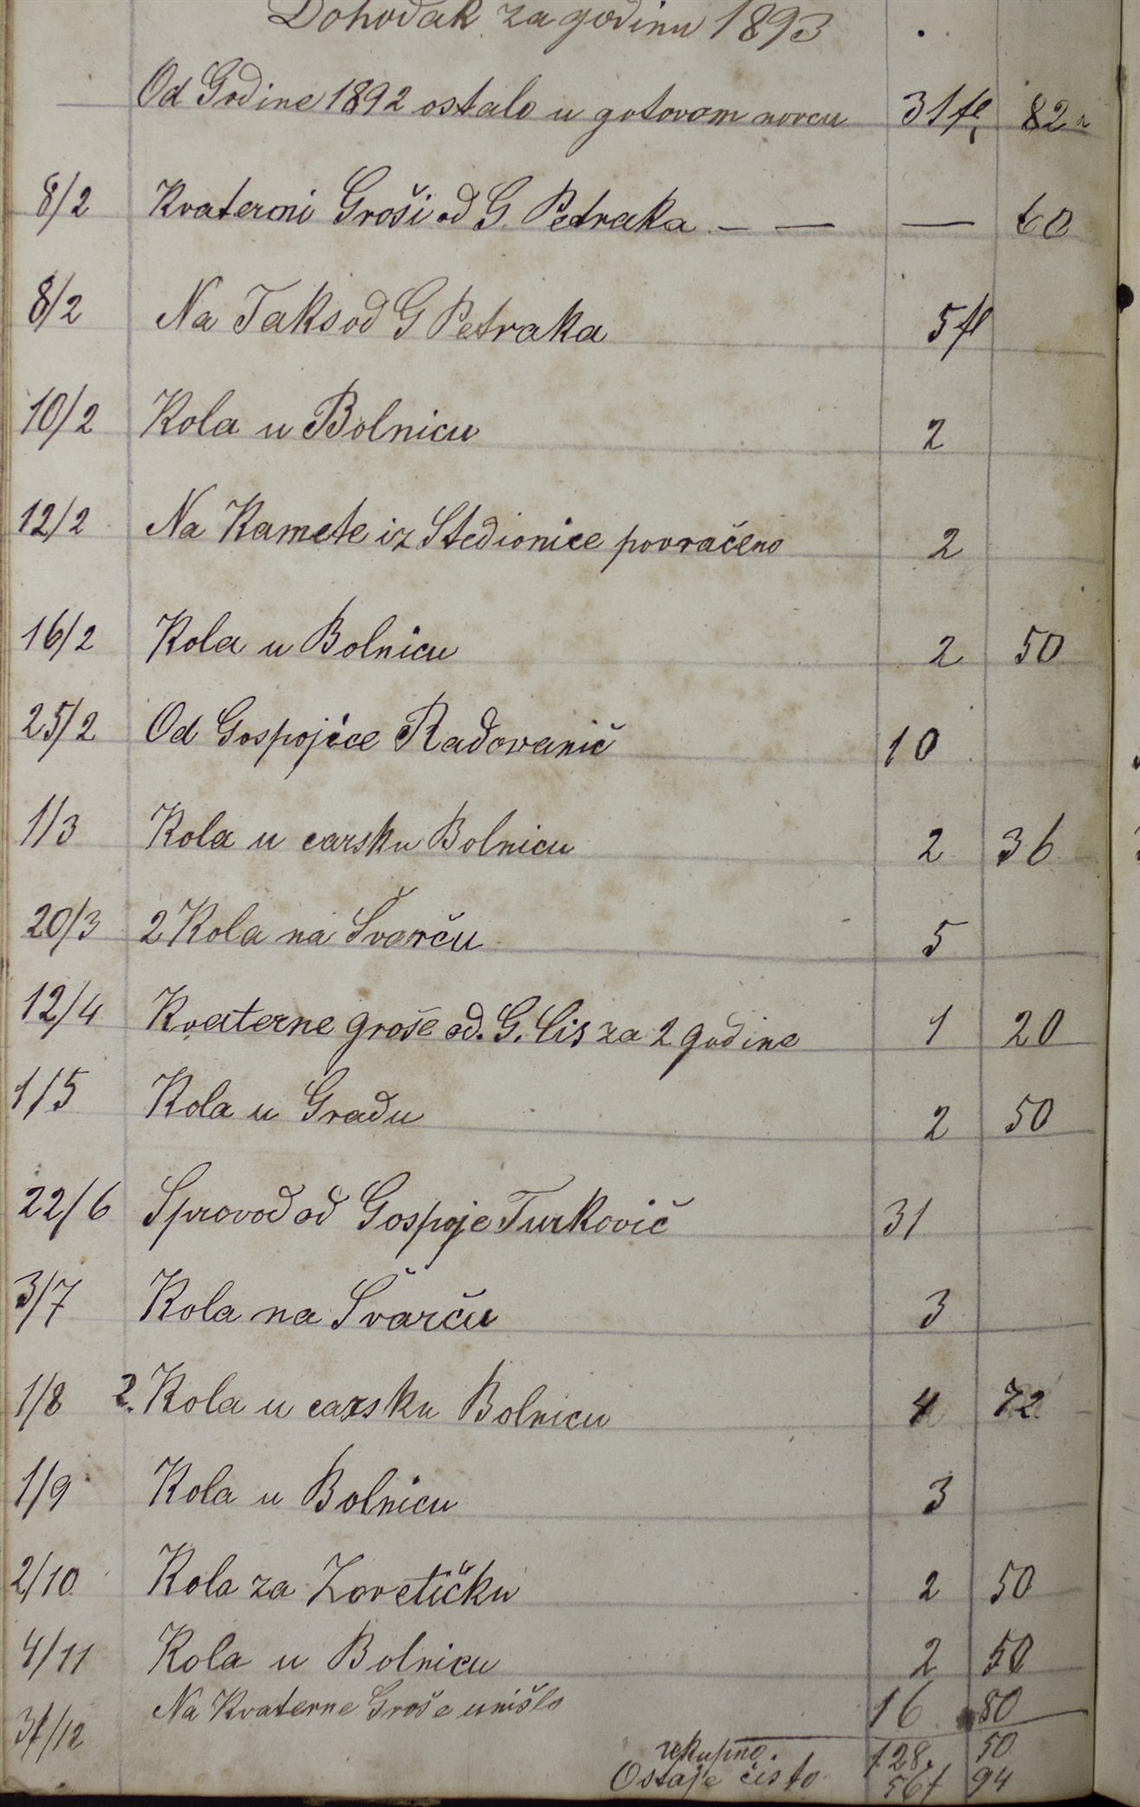 Dohodak za godinu 1893
Od Godine 1892 ostalo u gotovom novcu 31 fl 82
8/2 Kvaterni Groši od G. Petraka — — — 60
8/2 Na Taksod G Petraka 5 fl
10/2 Kola u Bolnicu 2
12/2 Na Kamete iz Stedionice povračeno 2
16/2 Kola u Bolnicu 2 50
25/2 Od Gospojice Radovanič 10
1/3 Kola u carsku Bolnicu 2 36
20/3 2 Kola na Švarču 5
12/4 Kvaterne groše od. G. Cis za 2 godine 1 20
1/5 Kola u Gradu 2 50
22/6 Sprovod od Gospoje Turkovič 31
3/7 Kola na Švarču 3
1/8 2. Kola u carsku Bolnicu 4 72
1/9 Kola u Bolnicu 3
2/10 Kola za Zoretičku 2 50
4/11 Kola u Bolnicu 2 50
31/12 Na Kvaterne Groše unišlo 16 80
vkupno. 128. 50
Ostaje čisto 56 f 94